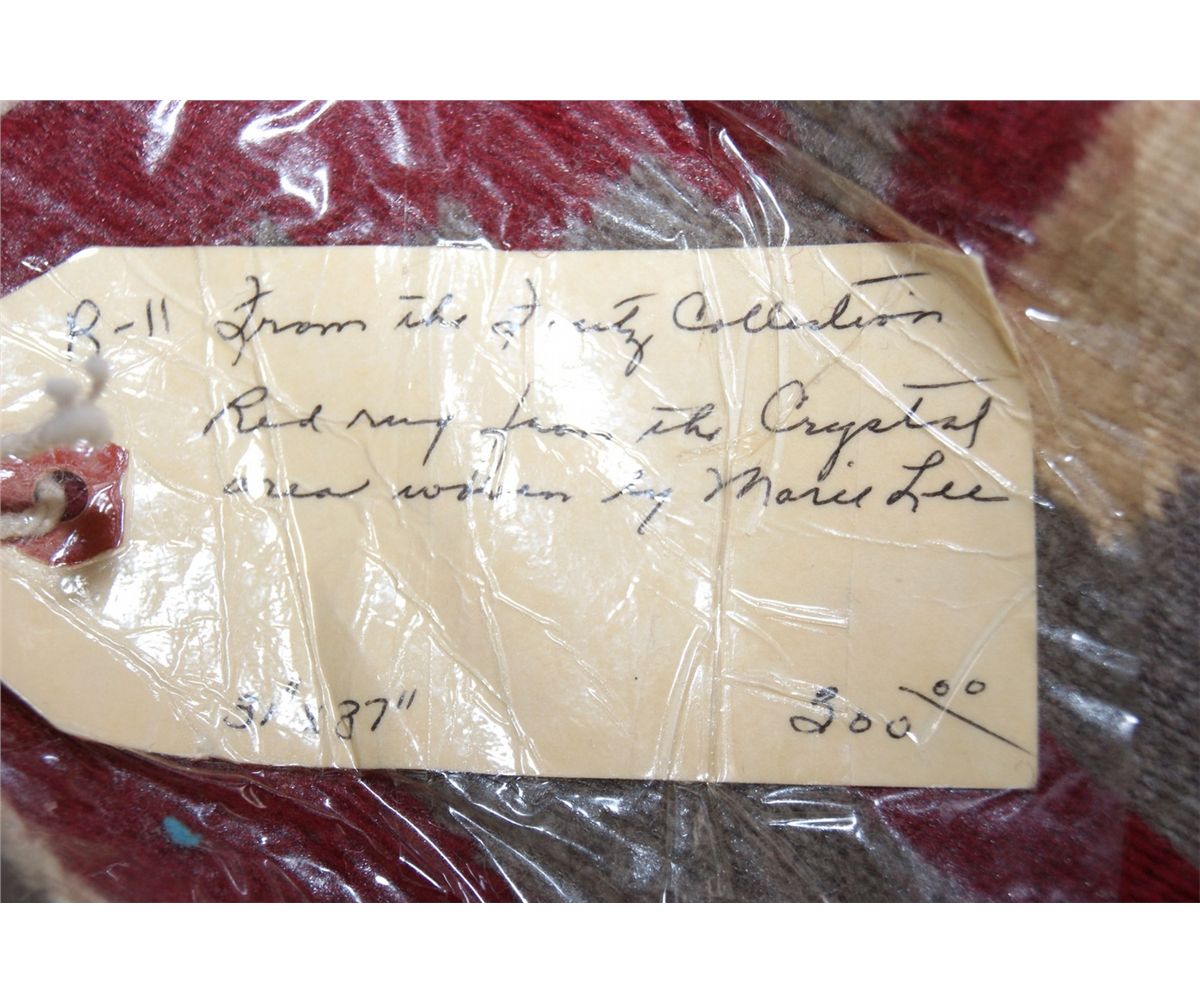 R-11 From the Fritz Collection
Red rug from the Crystal
area woven by Marie Lee
31" x 37" 300 00